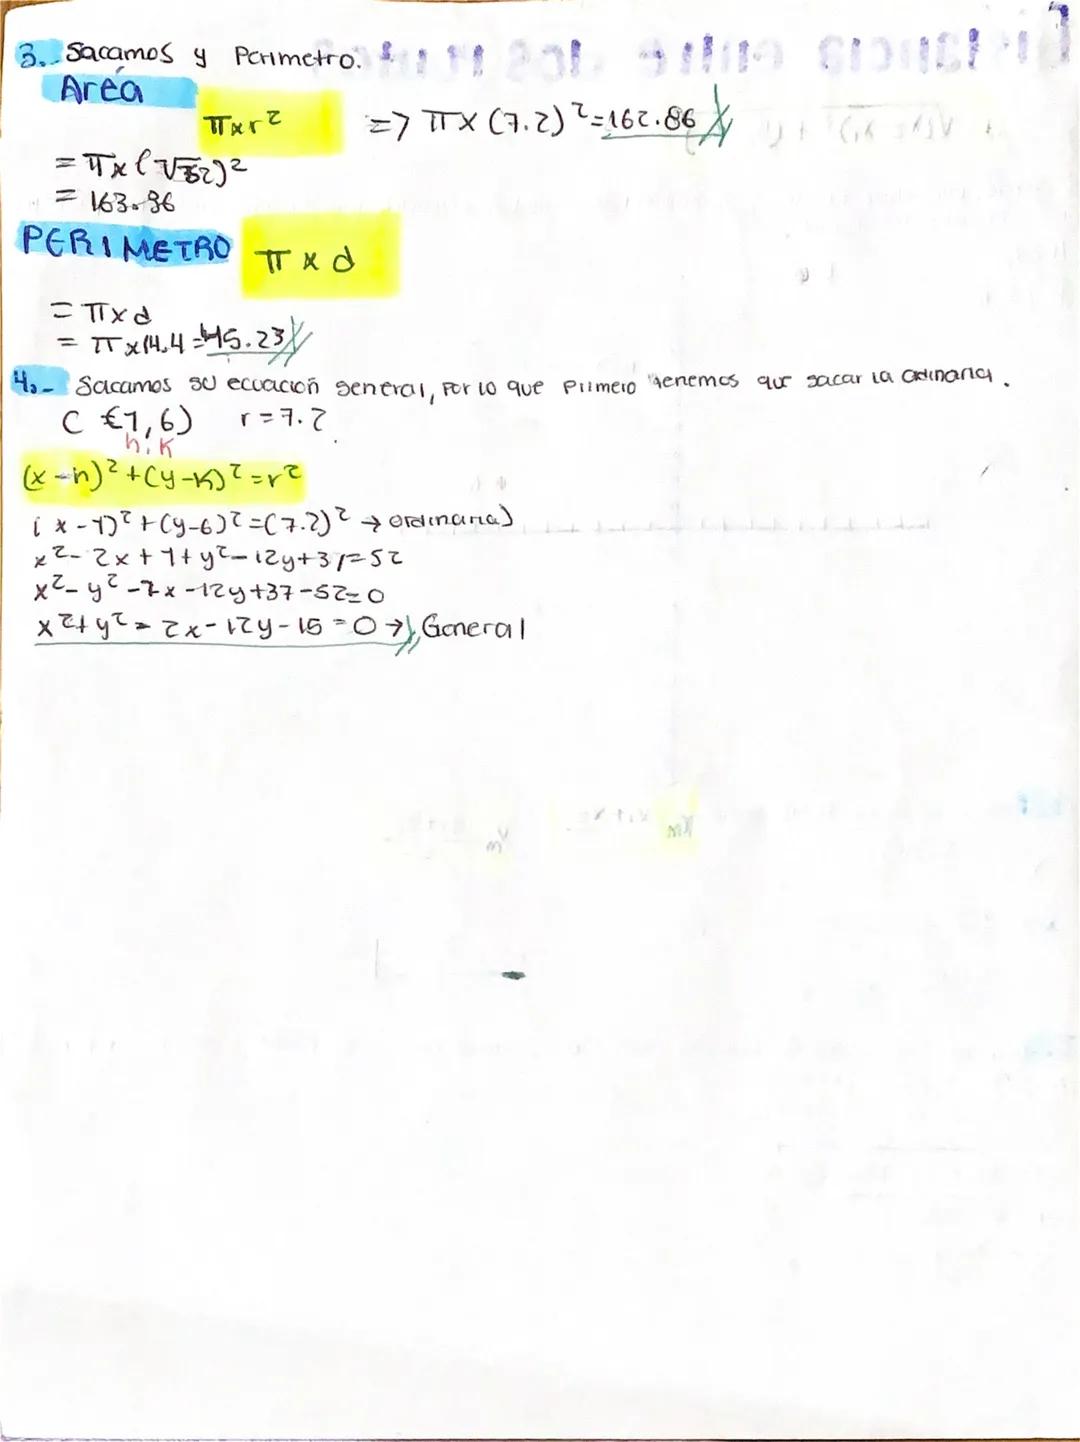 3.- Sacamos y Perimetro.
Área
π×r²
=> π× (7.2)²=162.86
= π×(√52)²
= 163.36
PERIMETRO
π × d
= π×d
= π×14.4=45.23
4.- Sacamos su ecuación general, Por lo que Primero tenemos que sacar la ordinaria.
C (1,6) r=7.2
h,k
(x-h)²+(y-k)²=r²
(x-1)²+(y-6)²=(7.2)² → ordinaria)
x²-2x+1+y²-12y+37=52
x²-y²-2x-12y+37-52=0
x²+y²-2x-12y-15=0 → General